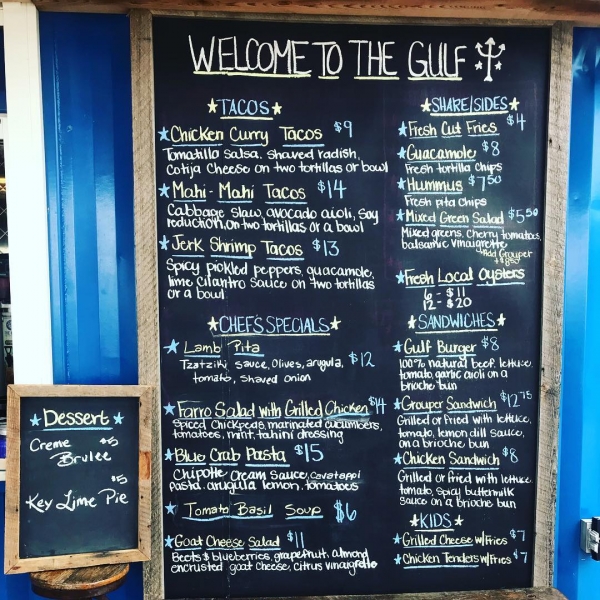 WELCOME TO THE GULF
TACOS
Chicken Curry Tacos $9
Tomatilla Salsa, shaved radish,
Cotija Cheese on two tortillas or bowl
Mahi-Mahi Tacos $14
Cabbage slaw, avocado aioli, soy
reduction, on two tortillas or a bowl
Jerk Shrimp Tacos $13
Spicy pickled peppers, guacamole,
lime cilantro sauce on two tortillas
or a bowl
CHEF'S SPECIALS
Lamb Pita $12
Tzatziki sauce, Olives, arugula,
tomato, shaved onion
Farro Salad with Grilled Chicken $14
Spiced Chickpeas, marinated cucumbers,
tomatoes, mint, tahini dressing
Blue Crab Pasta $15
Chipotle cream sauce, cavatappi
pasta, arugula lemon, tomatoes
Tomato Basil Soup $6
Goat Cheese Salad $11
Beets & blueberries, grapefruit, almond
encrusted goat cheese, citrus vinaigrette
SHARE/SIDES
Fresh Cut Fries $4
Guacamole $8
Fresh tortilla chips
Hummus $7.50
Fresh pita chips
Mixed Green Salad $5.50
Mixed greens, cherry tomatoes,
balsamic vinaigrette
*Add Grouper
+$8.50
Fresh Local Oysters
6 - $11
12 - $20
SANDWICHES
Gulf Burger $8
100% natural beef, lettuce,
tomato, garlic aioli on a
brioche bun
Grouper Sandwich $12.75
Grilled or Fried with lettuce,
tomato, lemon dill sauce,
on a brioche bun
Chicken Sandwich $8
Grilled or fried with lettuce
tomato, spicy buttermilk
sauce on a brioche bun
KIDS
Grilled Cheese w/Fries $7
Chicken Tenders w/Fries $7
Dessert
Creme $5
Brulee
$5
Key Lime Pie